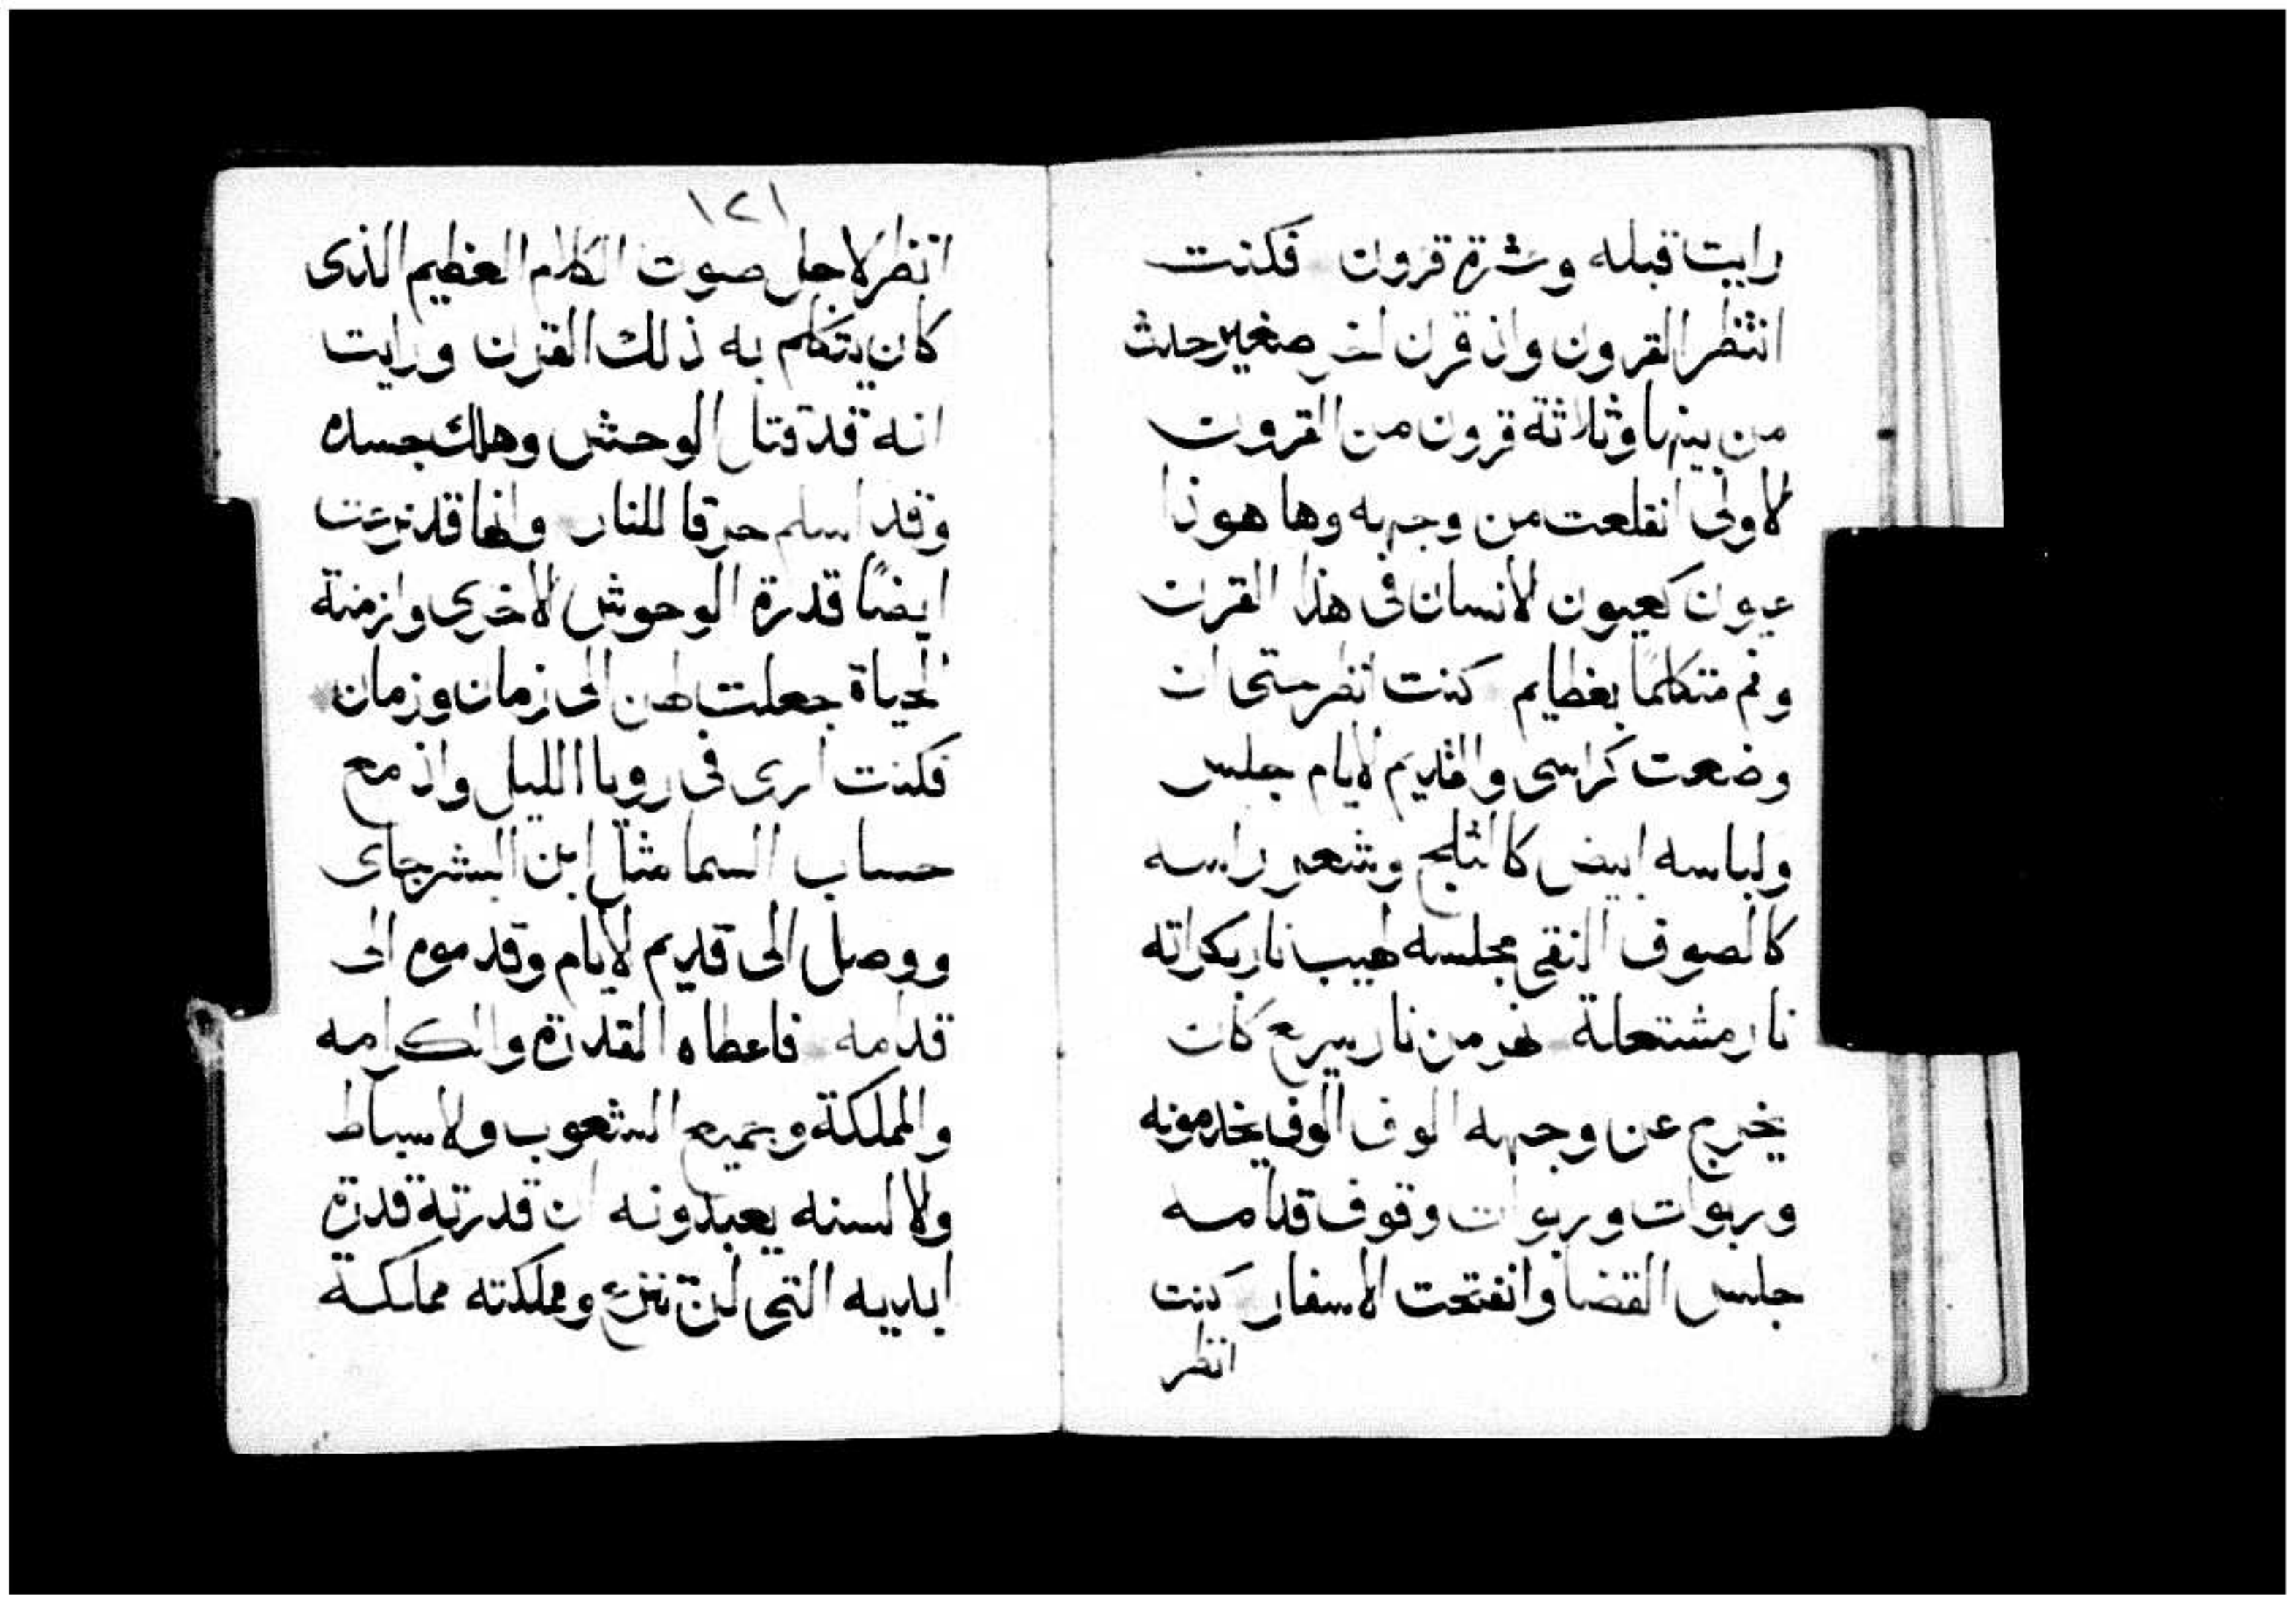 رايت قبله وعشرة قرون فكنت
انتظر القرون واذ قرن اخر صغير حدث
من بينها وثلاثة قرون من القرون
لاولى انقلعت من وجهه وها هوذا
عيون كعيون لانسان فى هذا القرن
وفم متكلما بعظايم كنت انظر حتى ان
وضعت كراسى والقديم لايام جلس
ولباسه ابيض كالثلج وشعر راسه
كالصوف النقى مجلسه لهيب نار بكراته
نار مشتعلة نهر من نار سريع كان
يخرج عن وجهه الوف الوف يخدمونه
وربوات وربوات وقوف قدامه
جلس القضا وانفتحت الاسفار كنت
انظر
١٢١
انظر لاجل صوت الكلام العظيم الذى
كان يتكلم به ذلك القرن ورايت
انه قد قتل الوحش وهلك جسده
وقد اسلم حرقا للنار وانها قد نزعت
ايضًا قدرة الوحوش لاخرى وازمنة
الحياة جعلت لهن الى زمان وزمان
فكنت ارى فى رويا الليل واذ مع
حساب السما مثل ابن البشر جاى
ووصل الى قديم لايام وقدموه الى
قدامه فاعطاه القدرة والكرامه
والمملكة وجميع الشعوب ولاسباط
ولالسنه يعبدونه ان قدرته قدرة
ابديه التى لن تنزع ومملكته مملكة